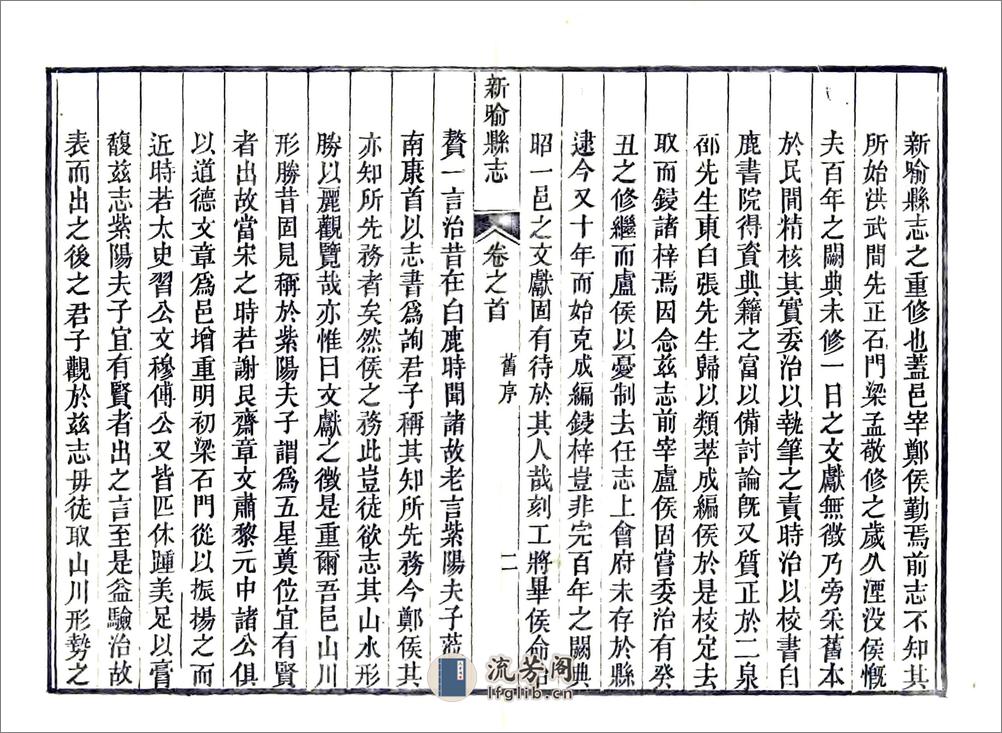 新喻縣志之重修也蓋邑宰鄭侯勤焉前志不知其
所始洪武間先正石門梁孟敬修之歲久湮没侯慨
夫百年之闕典未修一日之文獻無徵乃旁采舊本
於民間精核其實委治以執筆之責時治以校書白
鹿書院得資典籍之富以備討論旣又質正於二泉
邵先生東白張先生歸以類萃成編侯於是校定去
取而鋟諸梓焉因念兹志前宰盧侯固嘗委治有癸
丑之修繼而盧侯以憂制去任志上會府未存於縣
逮今又十年而始克成編鋟梓豈非完百年之闕典
昭一邑之文獻固有待於其人哉刻工將畢侯命
新喻縣志
卷之首
舊序
二
贅一言治昔在白鹿時聞諸故老言紫陽夫子蒞
南康首以志書爲詢君子稱其知所先務今鄭侯其
亦知所先務者矣然侯之務此豈徒欲志其山水形
勝以麗觀覽哉亦惟曰文獻之徵是重爾吾邑山川
形勝昔固見稱於紫陽夫子謂爲五星奠位宜有賢
者出故當宋之時若謝艮齋章文肅黎元中諸公俱
以道德文章爲邑增重明初梁石門從以振揚之而
近時若太史習公文穆傅公又皆匹休踵美足以膏
馥兹志紫陽夫子宜有賢者出之言至是益驗治故
表而出之後之君子觀於兹志毋徒取山川形勢之
流芳阁
lfglib.cn